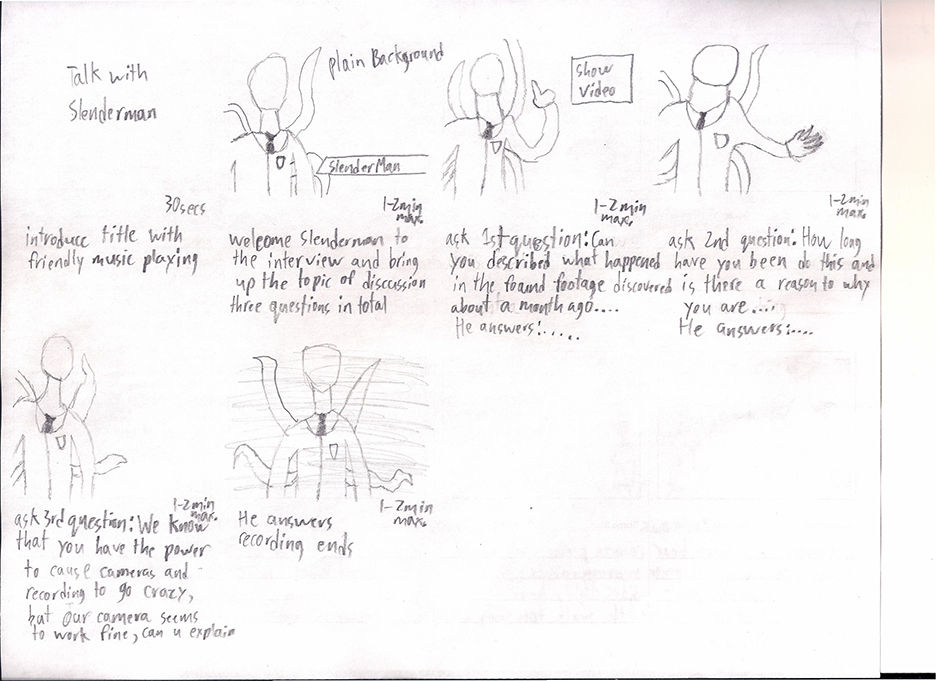 Talk with
Slenderman
30secs
introduce title with
friendly music playing
plain Background
SlenderMan
1-2min
max.
welcome Slenderman to
the interview and bring
up the topic of discussion
three questions in total
show
Video
1-2min
max.
ask 1st question: Can
you described what happened
in the found footage discovered
about a month ago....
He answers:.....
1-2min
max.
ask 2nd question: How long
have you been do this and
is there a reason to why
you are....
He answers:....
1-2min
max.
ask 3rd question: We know
that you have the power
to cause cameras and
recording to go crazy,
but our camera seems
to work fine, can u explain
1-2min
max.
He answers
recording ends